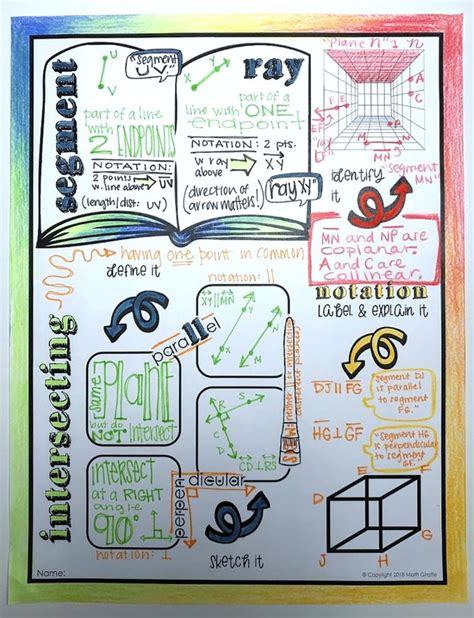 segment
U
V
"segment UV."
part of a line
with
2 ENDPOINTS
NOTATION:
2 points
w. line above
UV
(length/dist: UV)
ray
X
Y
part of a
line with ONE
endpoint
NOTATION: 2 pts.
w ray
above
XY
(direction of
arrow matters!)
"ray XY"
"Plane n"
A
C
E
F
P
M
N
MN
identify
"segment
MN"
MN and NP are
coplanar.
A and C are
collinear.
intersecting
having one point in common
define it
notation
LABEL & EXPLAIN IT
notation: ||
parallel
XY || MN
X
Y
N
M
same
Plane
but do
NOT intersect
SKEW:
S
R
C
D
CD ⊥ RS
intersect
at a RIGHT
angle
90°
perpendicular
notation: ⊥
sketch it
DJ || FG
"segment DJ
is parallel
to segment
FG."
HG ⊥ GF
"segment HG
is perpendicular
to segment
GF."
E
F
D
G
J
H
Name:
© Copyright 2018 Math Giraffe